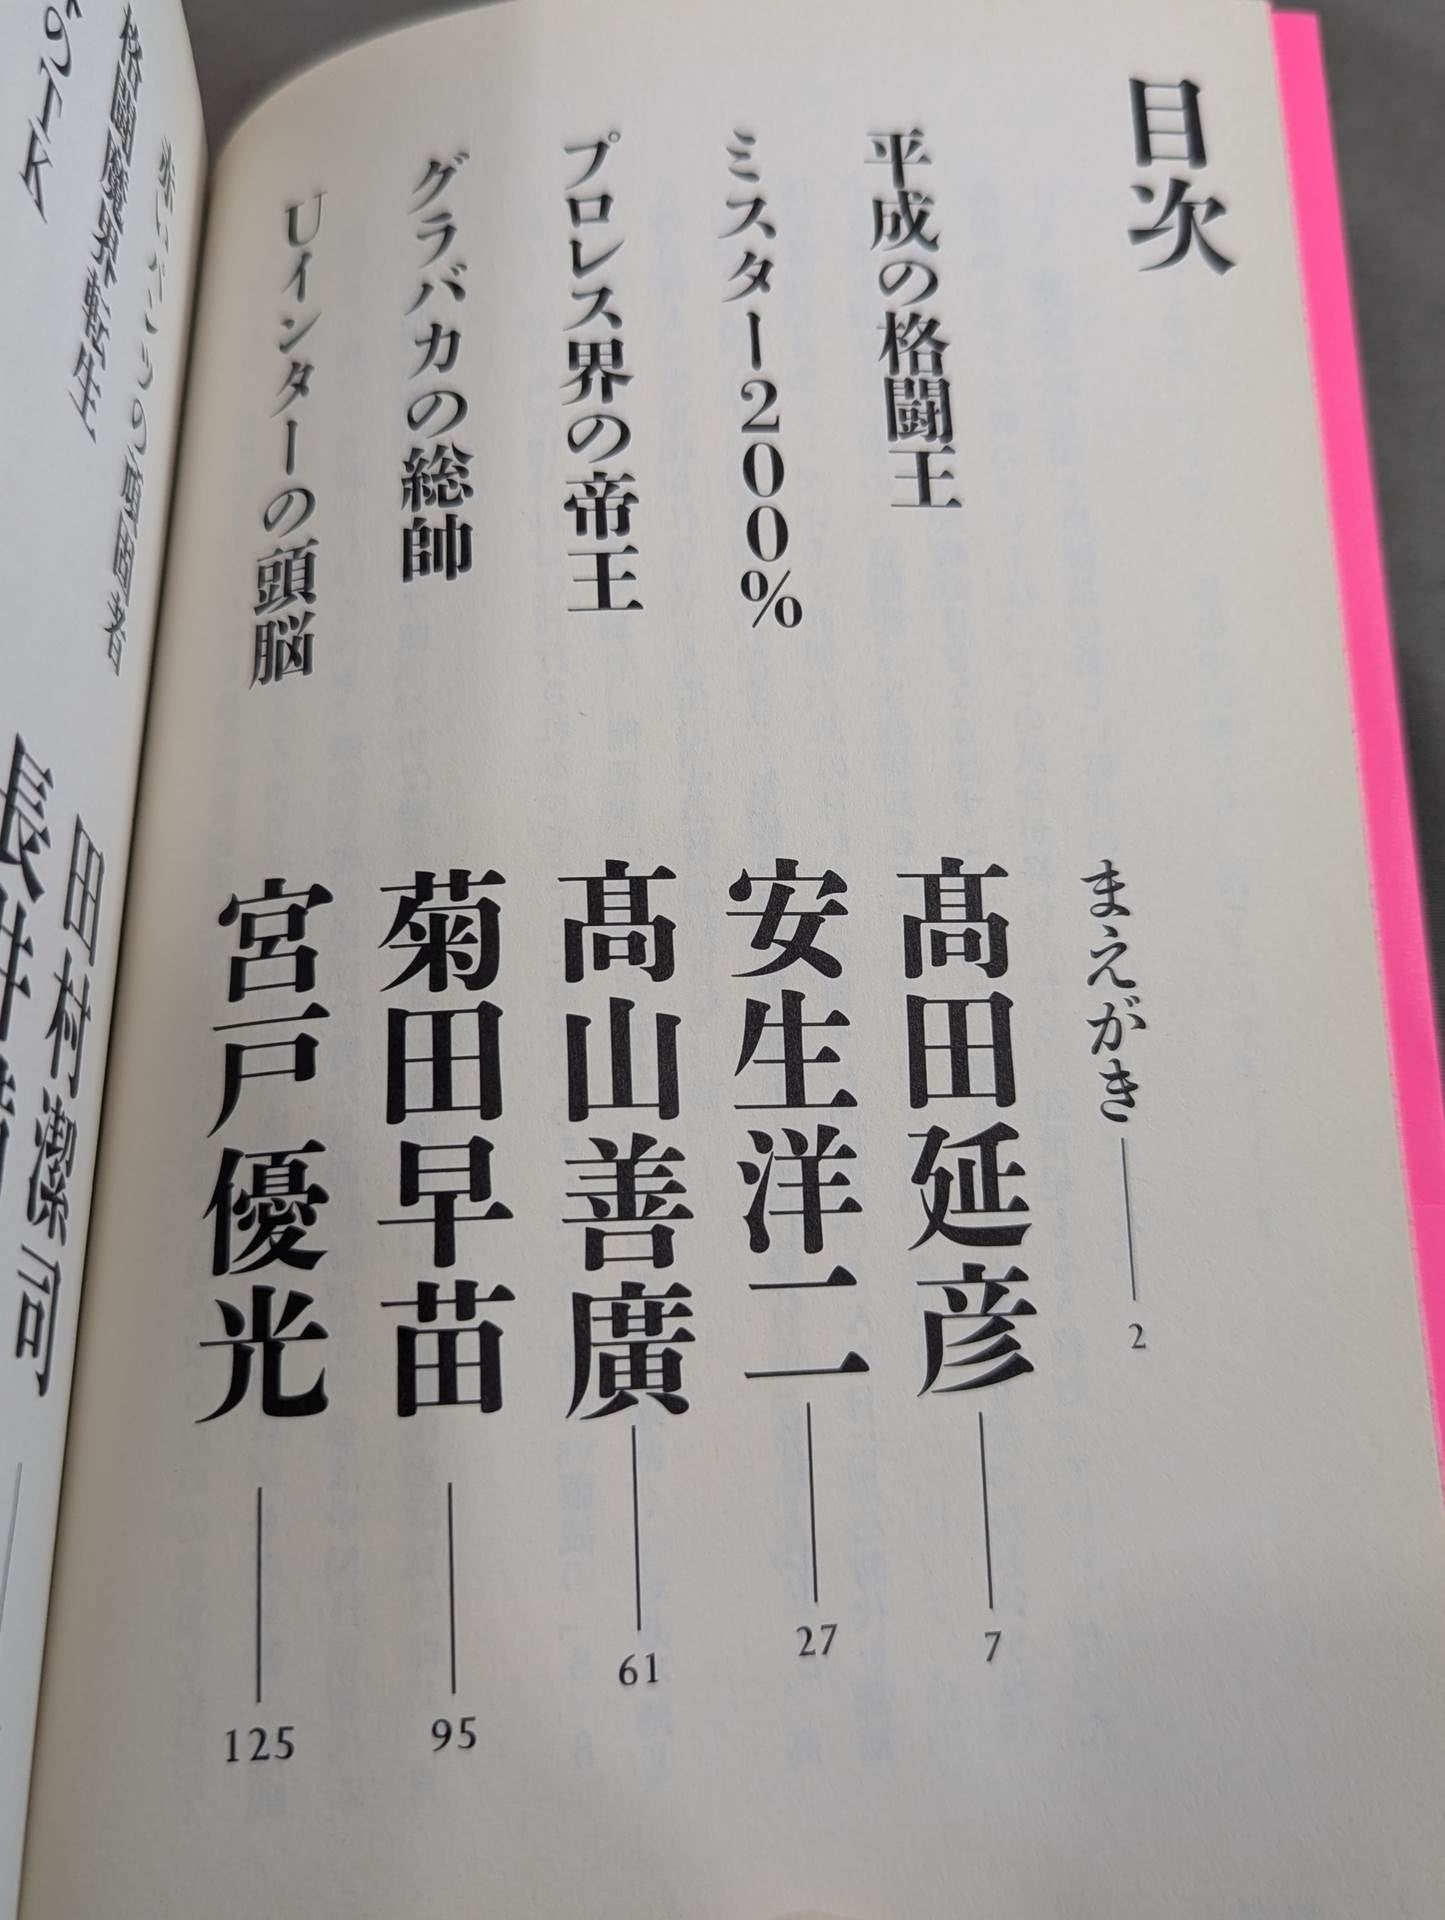 目次
まえがき 2
平成の格闘王 髙田延彦 7
ミスター200% 安生洋二 27
プロレス界の帝王 髙山善廣 61
グラバカの総帥 菊田早苗 95
Uインターの頭脳 宮戸優光 125
田村潔司
格闘魔界転生
のTK